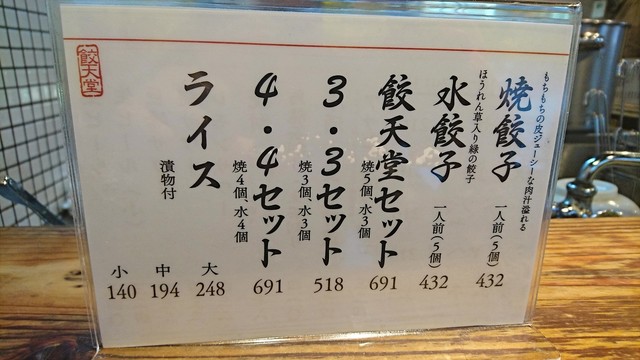 もちもちの皮ジューシーな肉汁溢れる
焼餃子 一人前(5個) 432
ほうれん草入り緑の餃子
水餃子 一人前(5個) 432
餃天堂セット 焼5個、水3個 691
3・3セット 焼3個、水3個 518
4・4セット 焼4個、水4個 691
ライス 漬物付
大 248
中 194
小 140
餃天堂